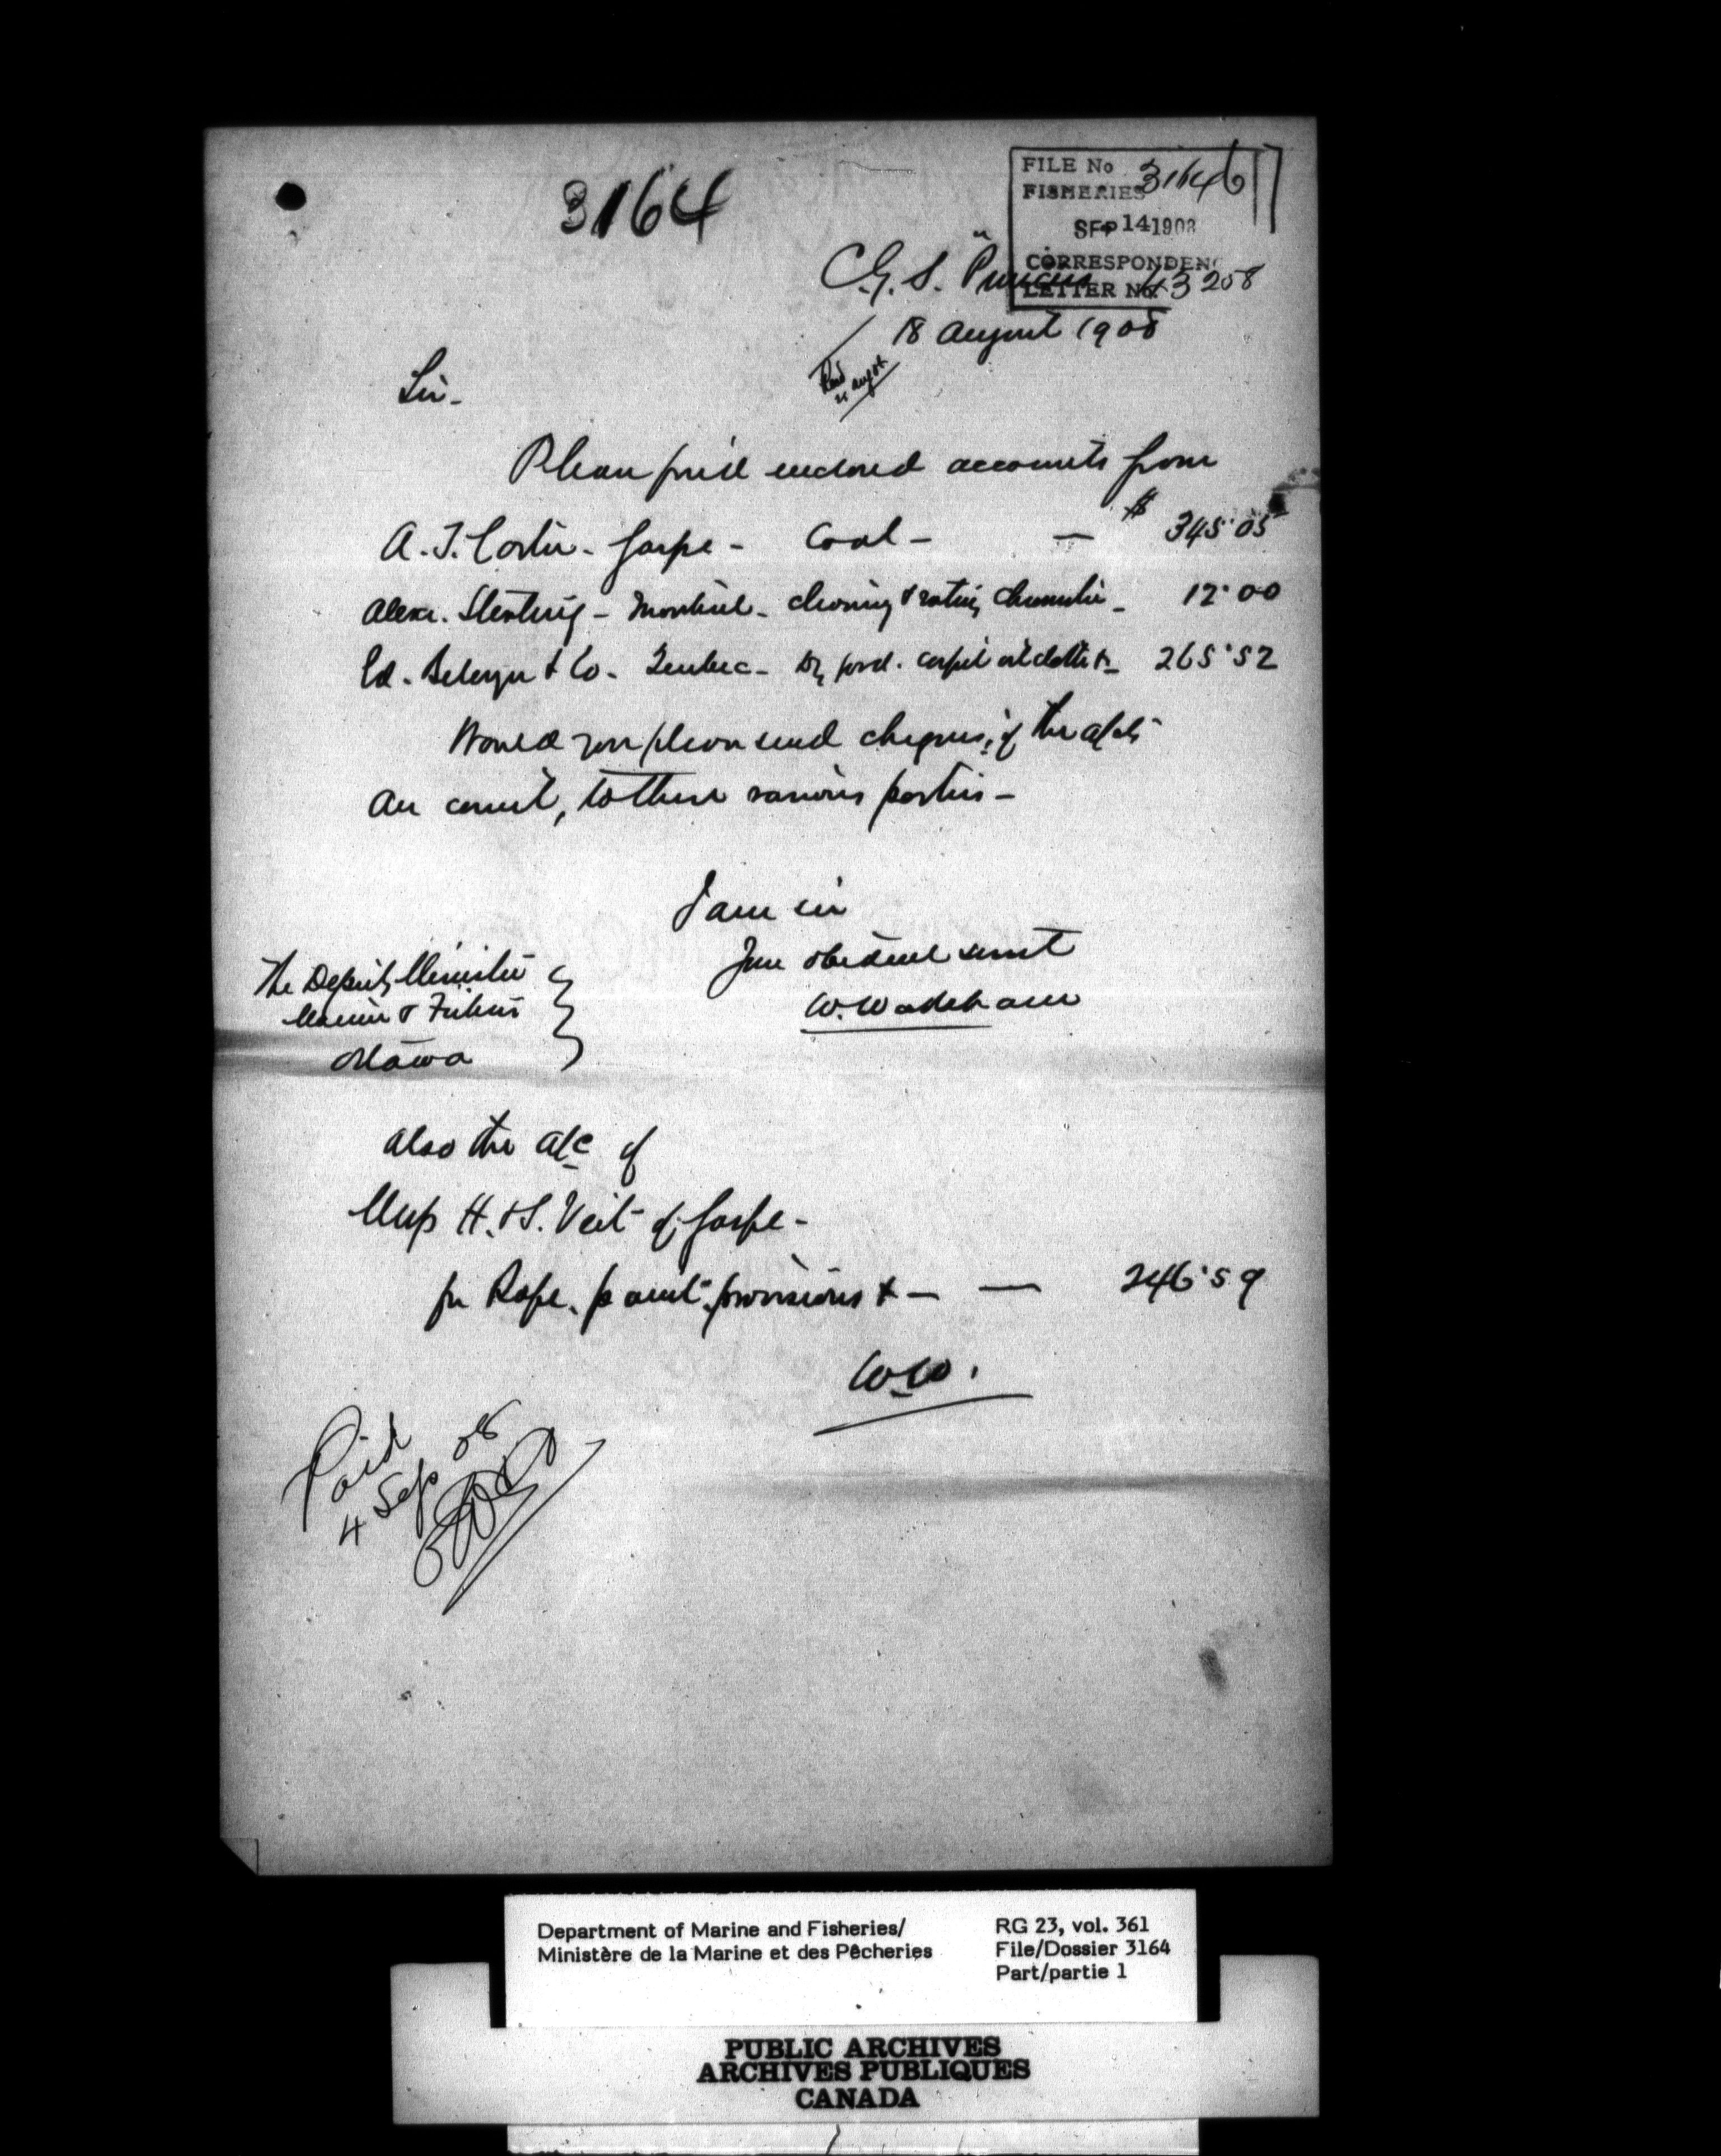 3164
FILE No 3164
FISHERIES
SEP 14 1908
CORRESPONDENC
LETTER No. 43258
C.G.S. "Princess
18 August 1908
Sir -
Please find enclosed accounts from
A. J. Carter - Gaspe - Coal - — $ 345.05
Alexr. - Montreal - cleaning & rating chronometer - 12.00
Ed. & Co. Quebec - Dry good. carpet oil cloth & - 265.52
Would you please send cheques, if the a/cts
are correct, to these various parties -
I am sir
Your obedient servt
W. Wakeham
The Deputy Minister
Marine & Fisheries
Ottawa
also the a/c of
Mess H. & S. Veit of Gaspe -
for Rope, paint, provisions & - — 246.59
W.W.
Paid
4 Sep 08
Department of Marine and Fisheries/
Ministère de la Marine et des Pêcheries
RG 23, vol. 361
File/Dossier 3164
Part/partie 1
PUBLIC ARCHIVES
ARCHIVES PUBLIQUES
CANADA